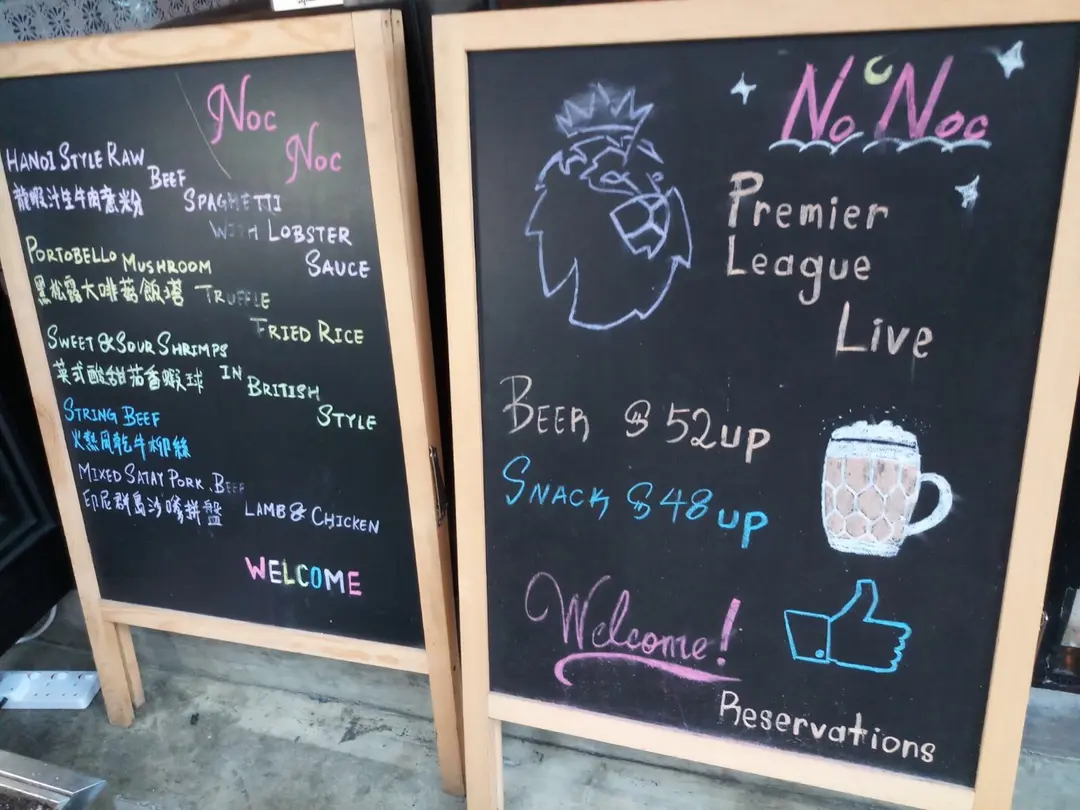 Noc
Noc
HANOI STYLE RAW
BEEF
龍蝦汁生牛肉意粉
SPAGHETTI
WITH LOBSTER
SAUCE
PORTOBELLO MUSHROOM
黑松露大啡菇飯塔 TRUFFLE
FRIED RICE
SWEET & SOUR SHRIMPS
英式酸甜茄香蝦球 IN
BRITISH
STYLE
STRING BEEF
火熱風乾牛柳絲
MIXED SATAY PORK, BEEF
印尼群島沙嗲拼盤 LAMB & CHICKEN
WELCOME
No Noc
Premier
League
Live
BEER $52UP
SNACK $48UP
Welcome!
Reservations